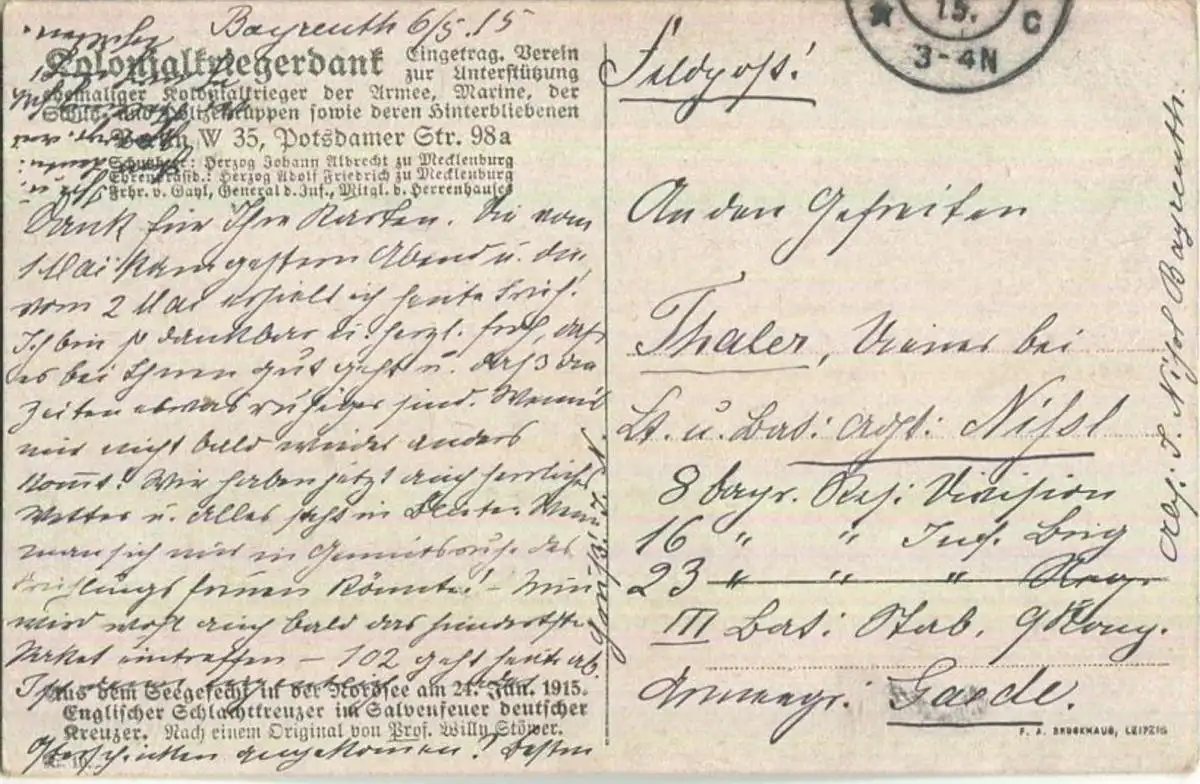 Bayreuth 6/5. 15
Kolonialkriegerdank Eingetrag. Verein
zur Unterstützung
ehemaliger Kolonialkrieger der Armee, Marine, der
Schutz- und Polizeitruppen sowie deren Hinterbliebenen
Berlin W 35, Potsdamer Str. 98a
Schutzherr: Herzog Johann Albrecht zu Mecklenburg
Ehrenpräsid.: Herzog Adolf Friedrich zu Mecklenburg
Frhr. v. Gayl, General d. Inf., Mitgl. d. Herrenhauses
Dank für Ihre Karten. Die vom
1 Mai kam gestern Abend u. die
vom 2 Mai erhielt ich heute früh!
Ich bin so dankbar u. herzl. froh, daß
es bei Ihnen gut geht u. daß die
Zeiten etwas ruhiger sind. Wenn's
nur nicht bald wieder anders
kommt! Wir haben jetzt auch herrliches
Wetter u. alles steht in Blüte. Wenn
man sich nur in Gemütsruhe des
Frühlings freuen könnte! – Nun
wird wohl auch bald das hundertste
Paket eintreffen – 102 geht heute ab.
Aus dem Seegefecht in der Nordsee am 24. Jan. 1915.
Englischer Schlachtkreuzer im Salvenfeuer deutscher
Kreuzer. Nach einem Original von Prof. Willy Stöwer.
angekommen? Besten
15.
3-4N
C
Feldpost!
An den Gefreiten
Thaler, Diener bei
Lt. u. Bat: Adjt: Nißl
8 bayr. Res: Division
16 " " Inf. Brig
23 " " " Reg.
III Bat: Stab. 9 Komp.
Armeegr: Gaede.
F. A. BROCKHAUS, LEIPZIG
Abs: S. Nißl Bayreuth.